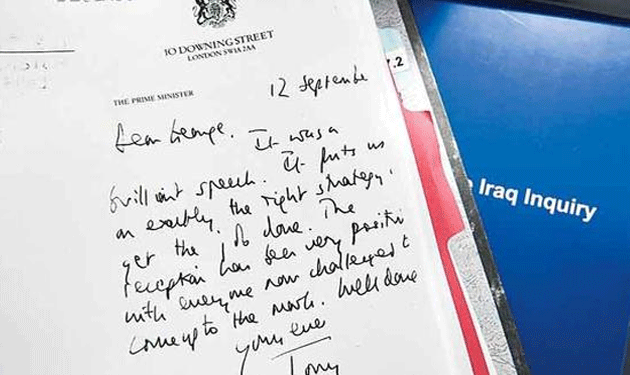 10 DOWNING STREET
LONDON SW1A 2AA
THE PRIME MINISTER
12 September
Dear George.
It was a
brilliant speech. It puts us
on exactly the right strategy.
get the job done. The
reception has been very positive
with everyone now challenged to
come up to the mark. Well done
yours ever
Tony
.2
Iraq Inquiry